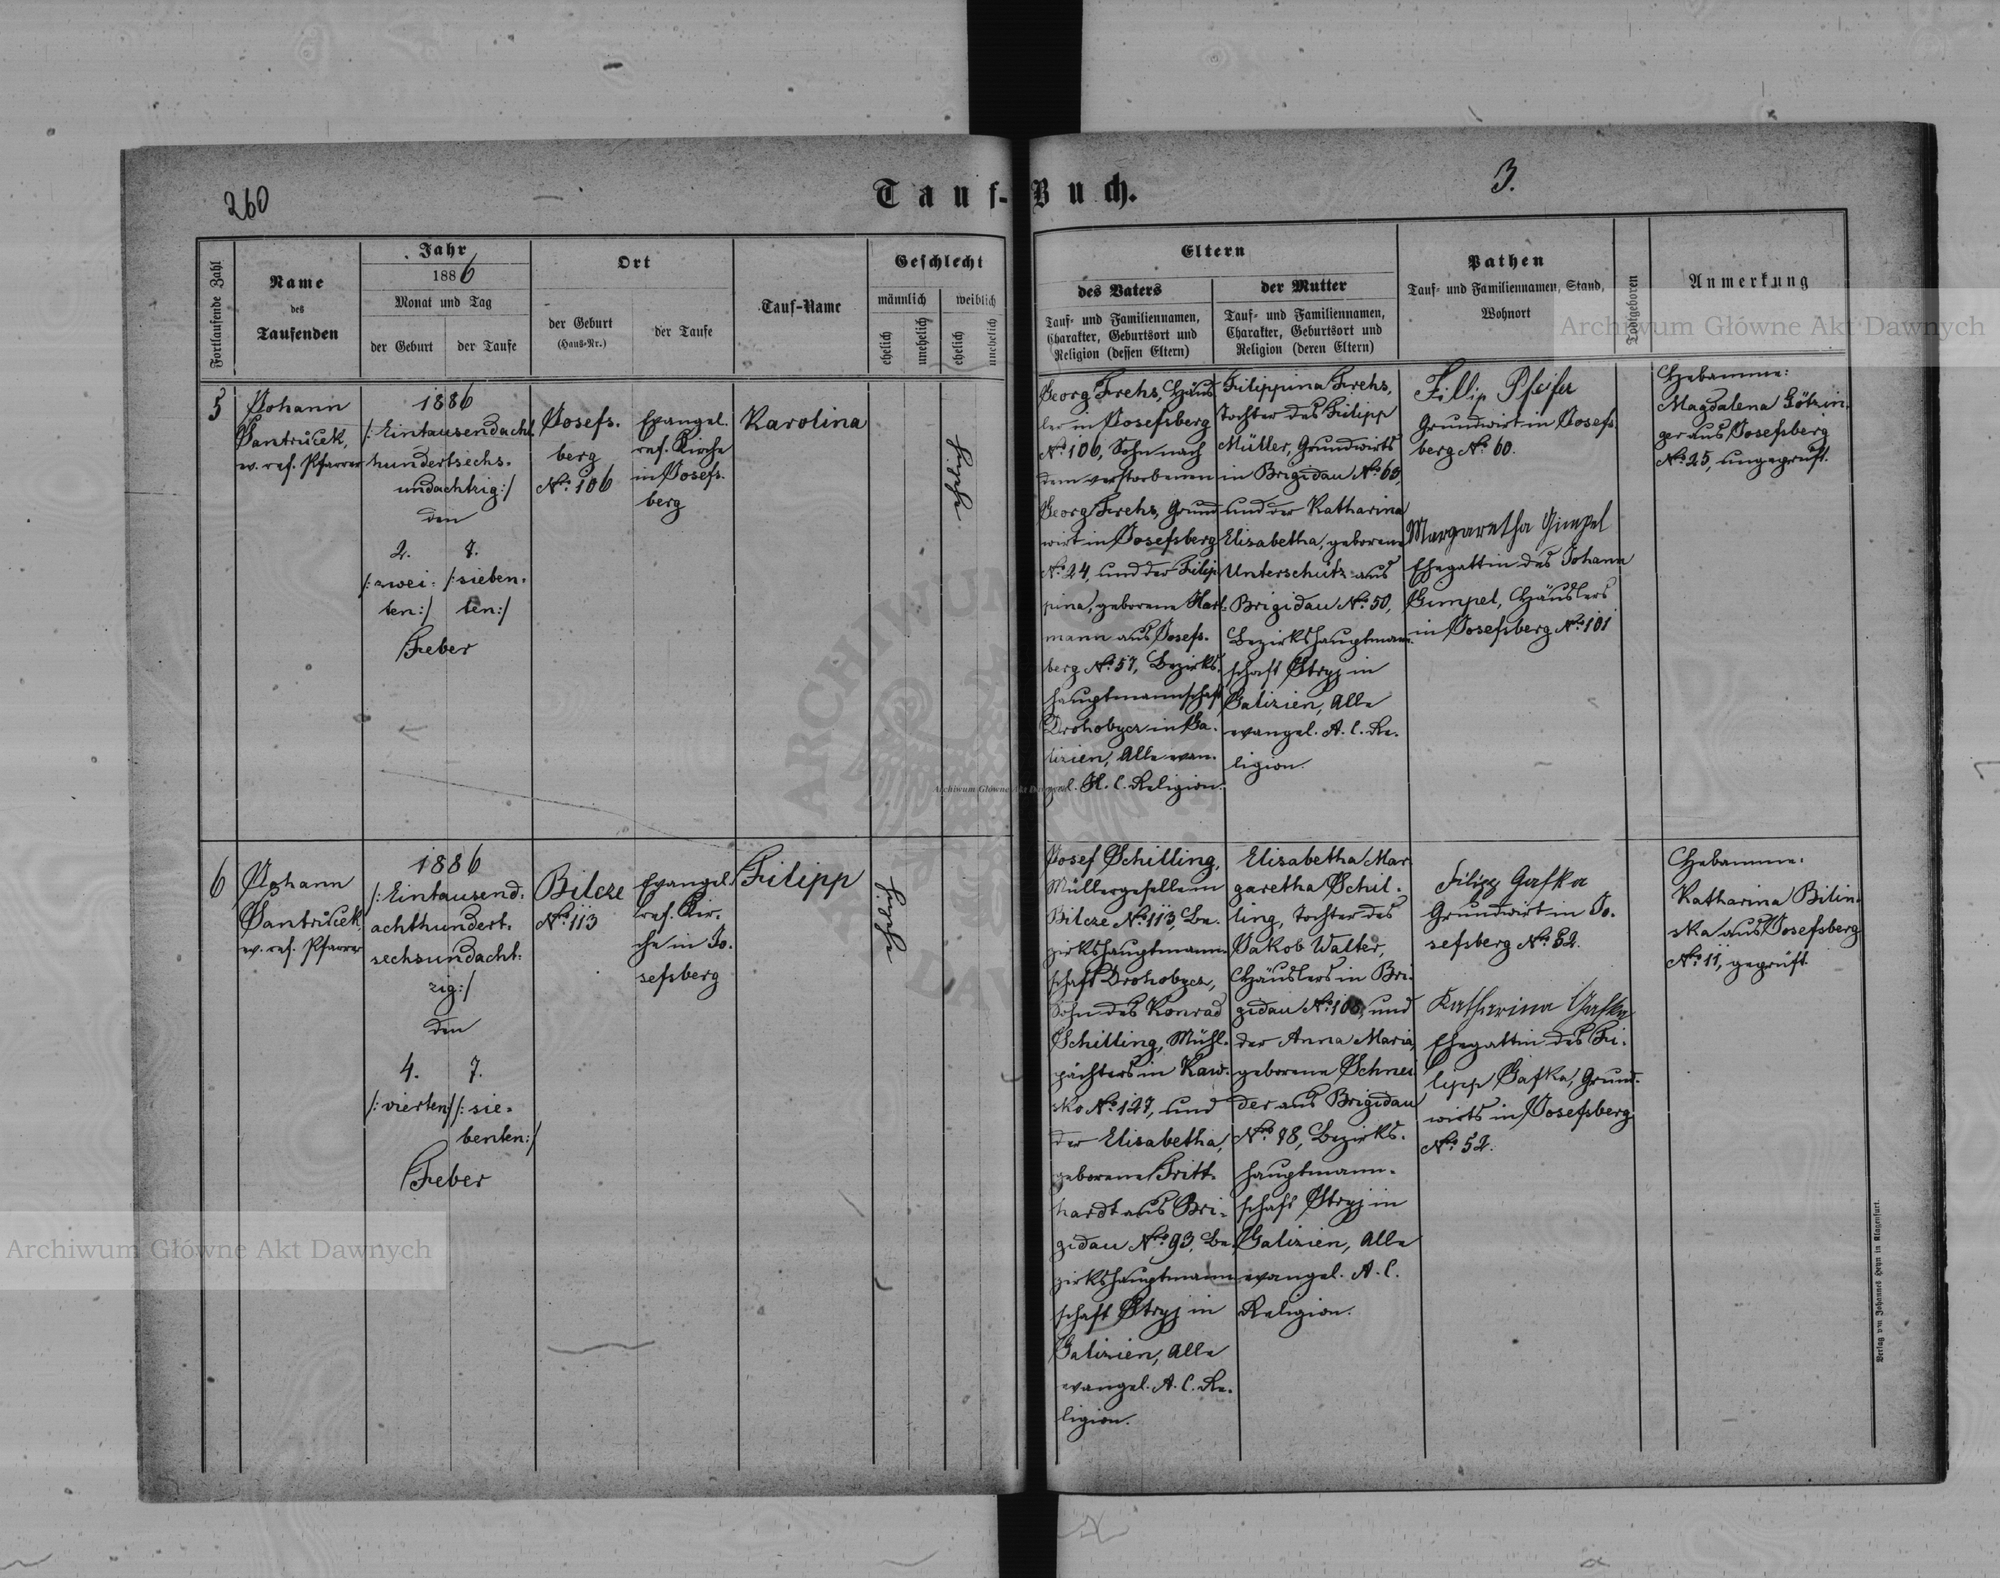 260
3.
Tauf-Buch.
Fortlaufende Zahl
Name
des
Taufenden
Jahr
1886
Monat und Tag
der Geburt
der Taufe
Ort
der Geburt
(Haus-Nr.)
der Taufe
Tauf-Name
Geschlecht
männlich
weiblich
ehelich
unehelich
ehelich
unehelich
Eltern
des Vaters
Tauf- und Familiennamen,
Charakter, Geburtsort und
Religion (dessen Eltern)
der Mutter
Tauf- und Familiennamen,
Charakter, Geburtsort und
Religion (deren Eltern)
Pathen
Tauf- und Familiennamen, Stand,
Wohnort
Todtgeboren
Anmerkung
5
Johann
Santrůček,
ev. ref. Pfarrer
1886
/:Eintausendacht
hundertsechs-
undachtzig:/
den
2.
/:zwei-
ten:/
7.
/:sieben-
ten:/
Feber
Josefs-
berg
No. 106
Evangel.
ref. Kirche
in Josefs-
berg
Karolina
Georg Frehs, Häus
ler in Josefsberg
No. 106, Sohn nach
dem verstorbenen
Georg Frehs, Grund
wirt in Josefsberg
No. 24, und der Filip
pina, geborene Hart-
mann aus Josefs-
berg No. 57, Bezirks-
hauptmannschaft
Drohobycz in Ga-
lizien, Alle evan-
gel. H. C. Religion.
Filippina Frehs,
Tochter des Filipp
Müller, Grundwirts
in Brigidau No. 60,
und der Katharina
Elisabetha, geborene
Unterschütz aus
Brigidau No. 50,
Bezirkshauptmann-
schaft Stryj in
Galizien, Alle
evangel. A. C. Re-
ligion.
Fillip Pfeifer
Grundwirt in Josefs
berg No. 60.
Margaretha Gimpel
Ehegattin des Johann
Gimpel, Häuslers
in Josefsberg No. 101
Hebamme:
Magdalena Götzin-
ger aus Josefsberg
No. 25, ungeprüft.
6
Johann
Santrůček,
ev. ref. Pfarrer
1886
/:Eintausend-
achthundert-
sechsundacht-
zig:/
den
4.
/:vierten:/
7.
/:sie-
benten:/
Feber
Bilcze
No. 113
Evangel.
ref. Kir-
che in Jo-
sefsberg
Filipp
Josef Schilling,
Müllergeselle in
Bilcze No. 113, Be-
zirkshauptmann-
schaft Drohobycz,
Sohn des Konrad
Schilling, Mühl-
pächters in Kaw-
sko No. 127, und
der Elisabetha,
geborene Fritt-
hardt aus Bri-
gidau No. 93, Be-
zirkshauptmann
schaft Stryj in
Galizien, Alle
evangel. A. C. Re-
ligion.
Elisabetha Mar-
garetha Schil-
ling, Tochter des
Jakob Walter,
Häuslers in Bri-
gidau No. 106, und
der Anna Maria,
geborene Schnei
der aus Brigidau
No. 98, Bezirks-
hauptmann-
schaft Stryj in
Galizien, Alle
evangel. A. C.
Religion.
Filipp Gafka
Grundwirt in Jo-
sefsberg No. 52.
Katharina Gafka
Ehegattin des Fi-
lipp Gafka, Grund-
wirts in Josefsberg
No. 52.
Hebamme:
Katharina Bilin-
ska aus Josefsberg
No. 11, geprüft.
Verlag von Johannes Heyn in Klagenfurt.
Archiwum Główne Akt Dawnych
Archiwum Główne Akt Dawnych
Archiwum Główne Akt Dawnych